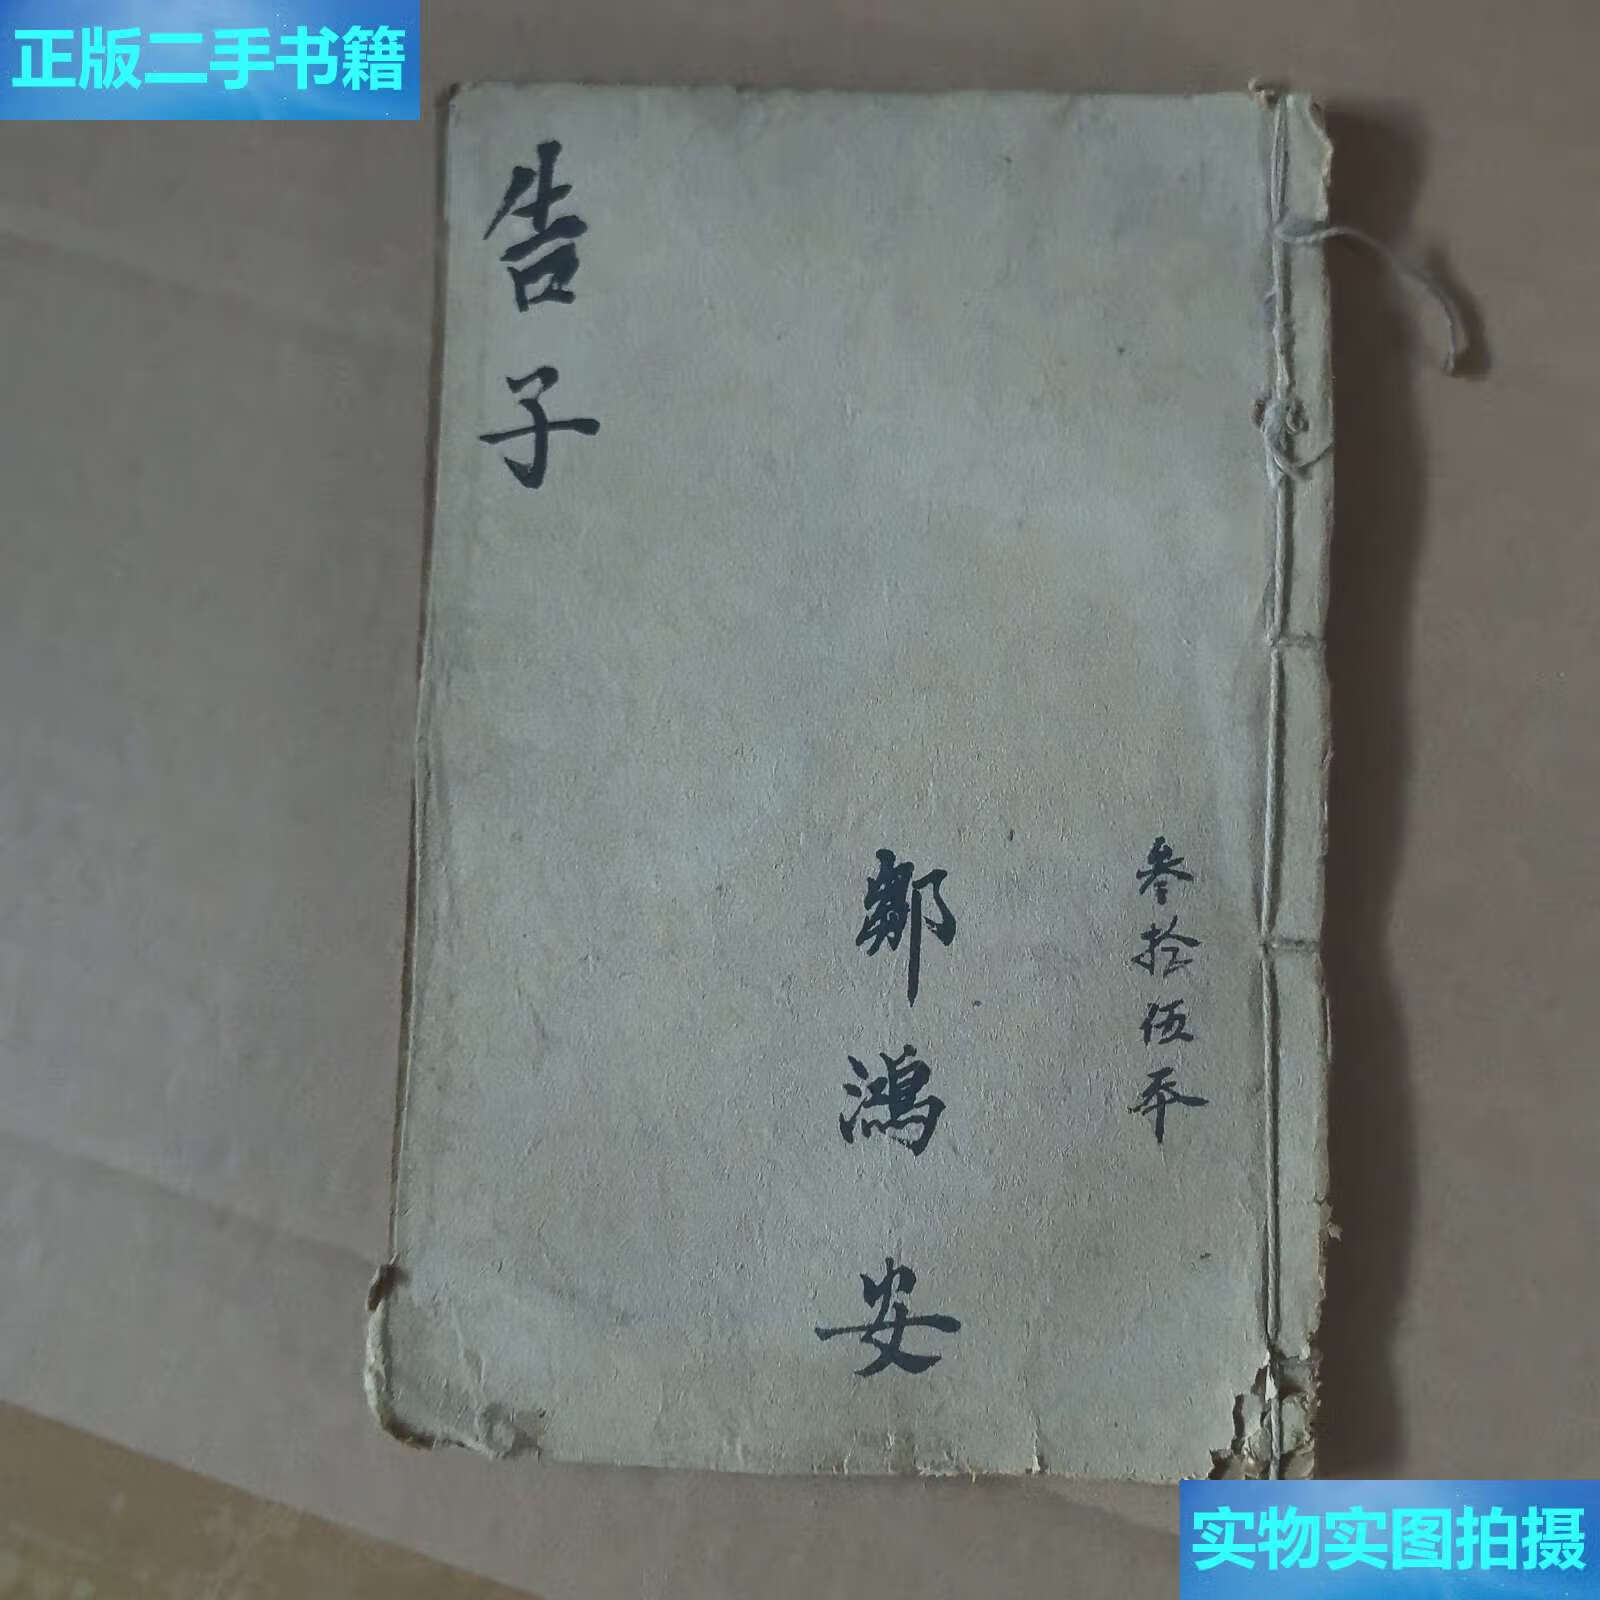 正版二手书籍
告子
鄒鴻安
叁拾伍本
实物实图拍摄